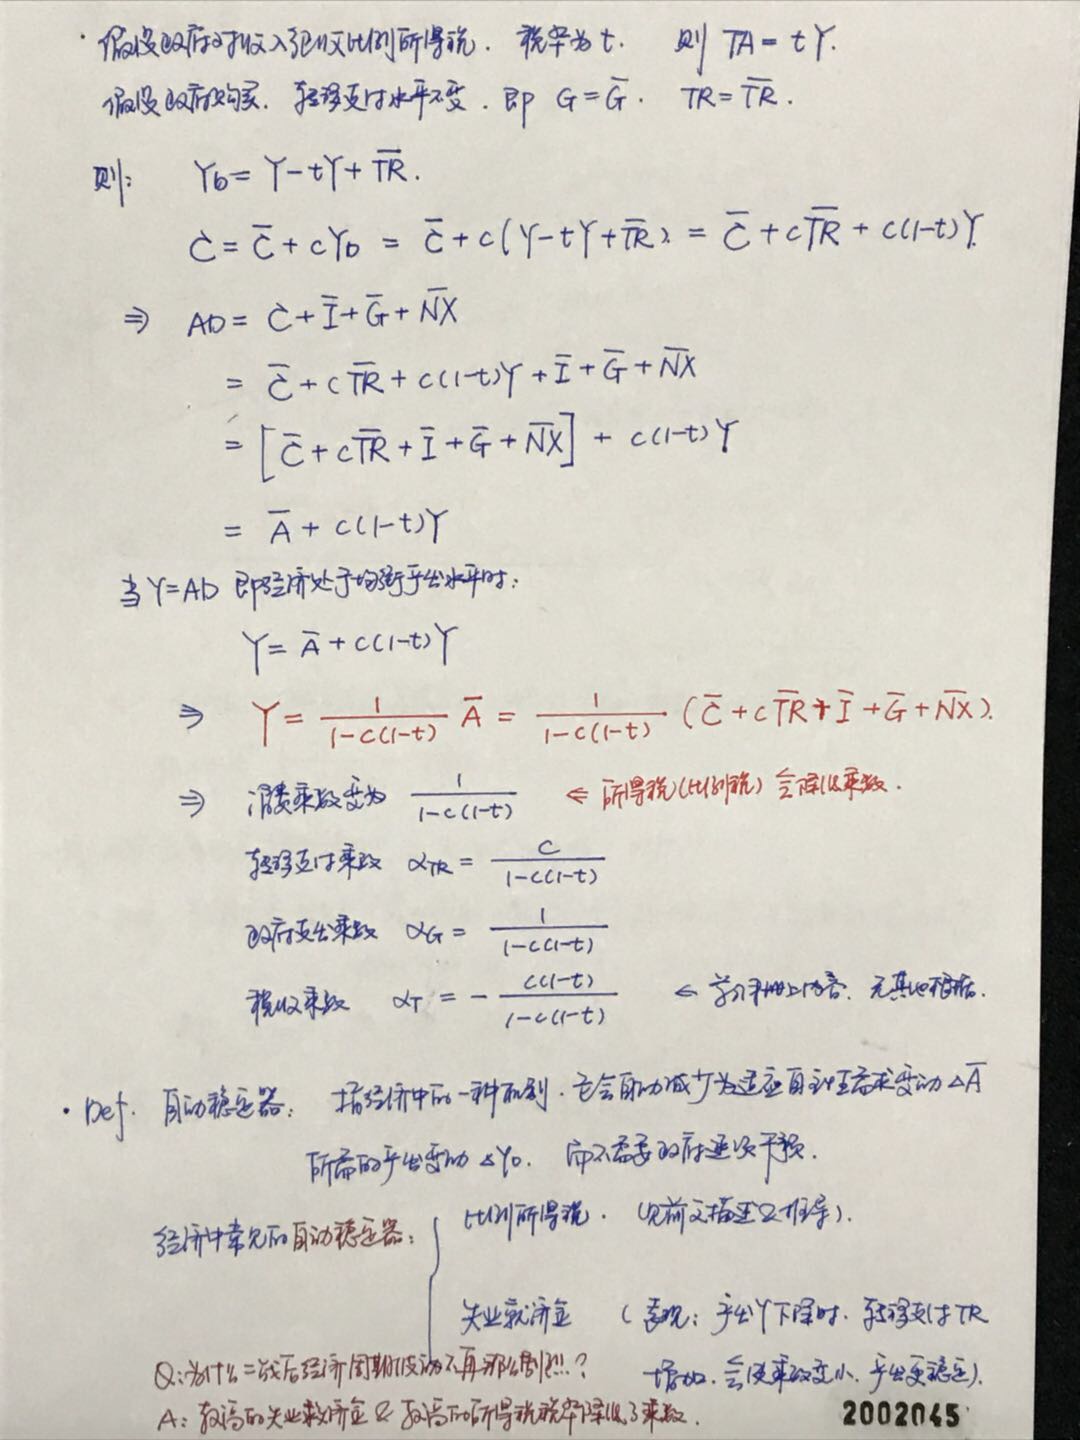 · 假设政府对收入征收比例所得税. 税率为t. 则 TA = tY.
假设政府购买、转移支付水平不变. 即 G = G̅. TR = T̅R̅.
则: YD = Y - tY + T̅R̅.
C = C̅ + cYD = C̅ + c(Y - tY + T̅R̅) = C̅ + cT̅R̅ + c(1-t)Y.
⇒ AD = C + I̅ + G̅ + N̅X̅
= C̅ + cT̅R̅ + c(1-t)Y + I̅ + G̅ + N̅X̅
= [C̅ + cT̅R̅ + I̅ + G̅ + N̅X̅] + c(1-t)Y
= A̅ + c(1-t)Y
当Y=AD 即经济处于均衡产出水平时:
Y = A̅ + c(1-t)Y
⇒ Y = 1/(1-c(1-t)) A̅ = 1/(1-c(1-t)) (C̅ + cT̅R̅ + I̅ + G̅ + N̅X̅).
⇒ 消费乘数变为 1/(1-c(1-t)) ⇐ 所得税(比例税)会降低乘数.
转移支付乘数 αTR = c/(1-c(1-t))
政府支出乘数 αG = 1/(1-c(1-t))
税收乘数 αT = - c(1-t)/(1-c(1-t)) ← 上内容. 无其他根据.
· Def. 自动稳定器: 指经济中的一种机制. 它会自动减少为适应自主性需求变动 ΔA̅
所需的产出变动 ΔY0. 而不需要政府逐项干预.
经济中常见的自动稳定器: { 比例所得税. (见前文描述&推导).
失业救济金 (表现: 产出Y下降时. 转移支付TR
增加. 会使乘数变小. 产出更稳定).
Q: 为什么二战后经济周期波动不再那么剧烈?
A: 较高的失业救济金 & 较高的所得税税率降低了乘数.
2002045